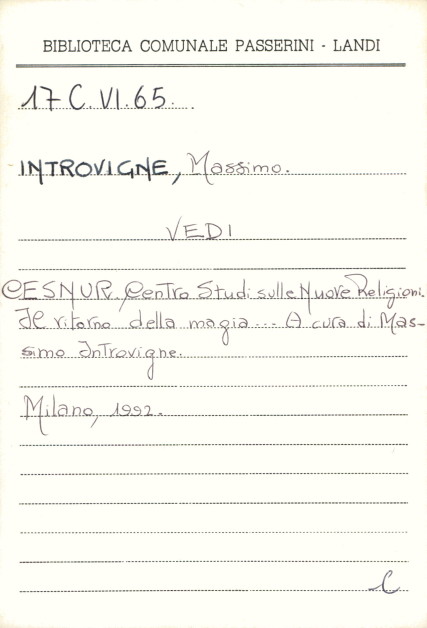 BIBLIOTECA COMUNALE PASSERINI - LANDI
17 C. VI. 65.
INTROVIGNE, Massimo.
VEDI
CESNUR, Centro Studi sulle Nuove Religioni.
Il ritorno della magia... A cura di Mas-
simo Introvigne.
Milano, 1992.
C